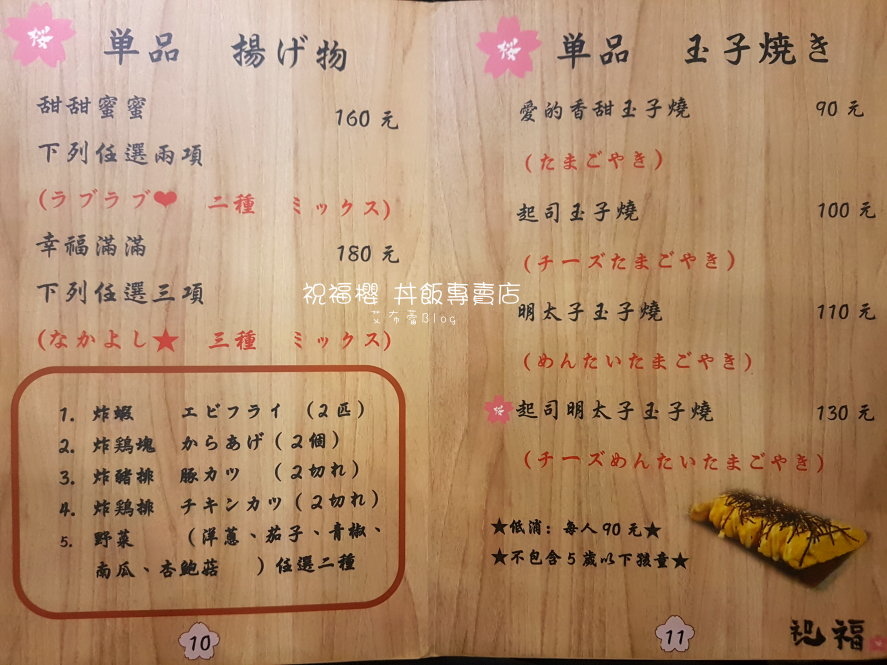 桜
単品 揚げ物
甜甜蜜蜜 160元
下列任選兩項
(ラブラブ❤ 二種 ミックス)
幸福滿滿 180元
下列任選三項
(なかよし★ 三種 ミックス)
1. 炸蝦 エビフライ (2匹)
2. 炸鶏塊 からあげ(2個)
3. 炸豬排 豚カツ (2切れ)
4. 炸鶏排 チキンカツ(2切れ)
5. 野菜 (洋蔥、茄子、青椒、
南瓜、杏鮑菇 )任選二種
10
桜
単品 玉子焼き
愛的香甜玉子燒 90元
(たまごやき)
起司玉子燒 100元
(チーズたまごやき)
明太子玉子燒 110元
(めんたいたまごやき)
桜 起司明太子玉子燒 130元
(チーズめんたいたまごやき)
★低消：每人90元★
★不包含5歲以下孩童★
11
祝福
祝福櫻 丼飯專賣店
艾布蕾Blog